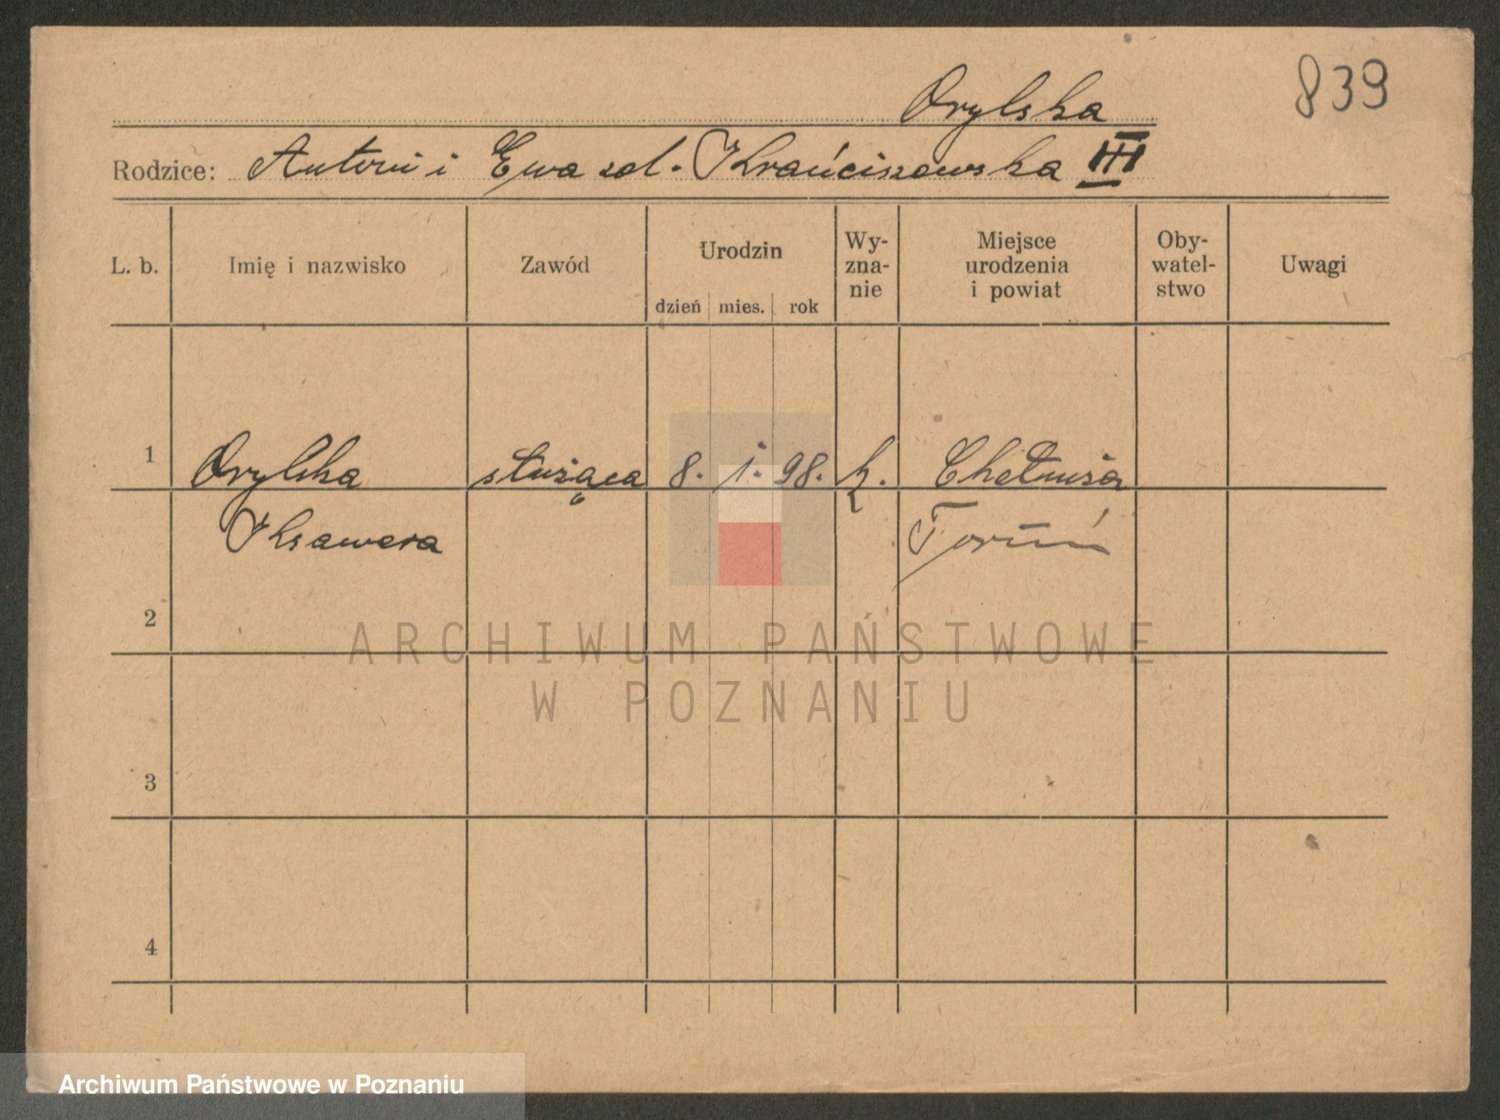 839
Orylska
Rodzice: Antoni i Ewa zd. Krańciszewska III
L. b.
Imię i nazwisko
Zawód
Urodzin
dzień mies. rok
Wy-
zna-
nie
Miejsce
urodzenia
i powiat
Oby-
watel-
stwo
Uwagi
1 Orylska służąca 8. 1. 98. k. Chełmża
Ksawera Toruń
2
3
4
ARCHIWUM PAŃSTWOWE
W POZNANIU
Archiwum Państwowe w Poznaniu